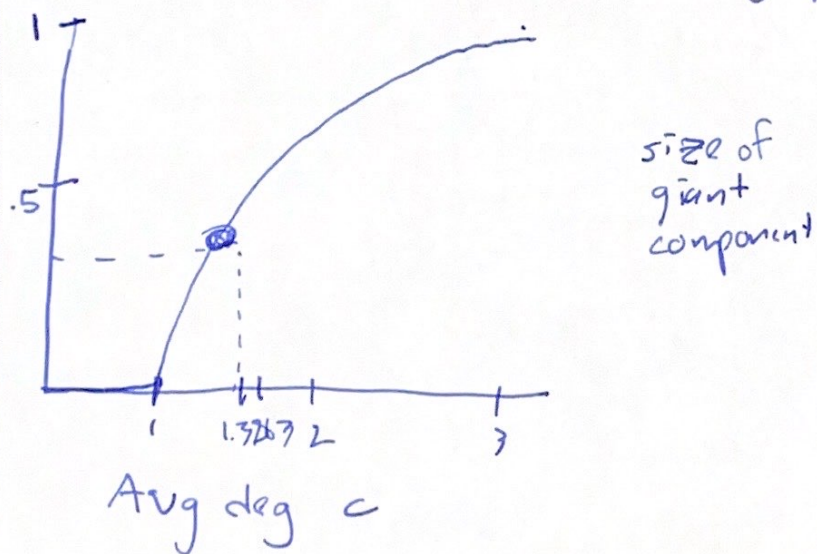 1
.5
size of
giant
component
1 1.3863 2 3
Avg deg c